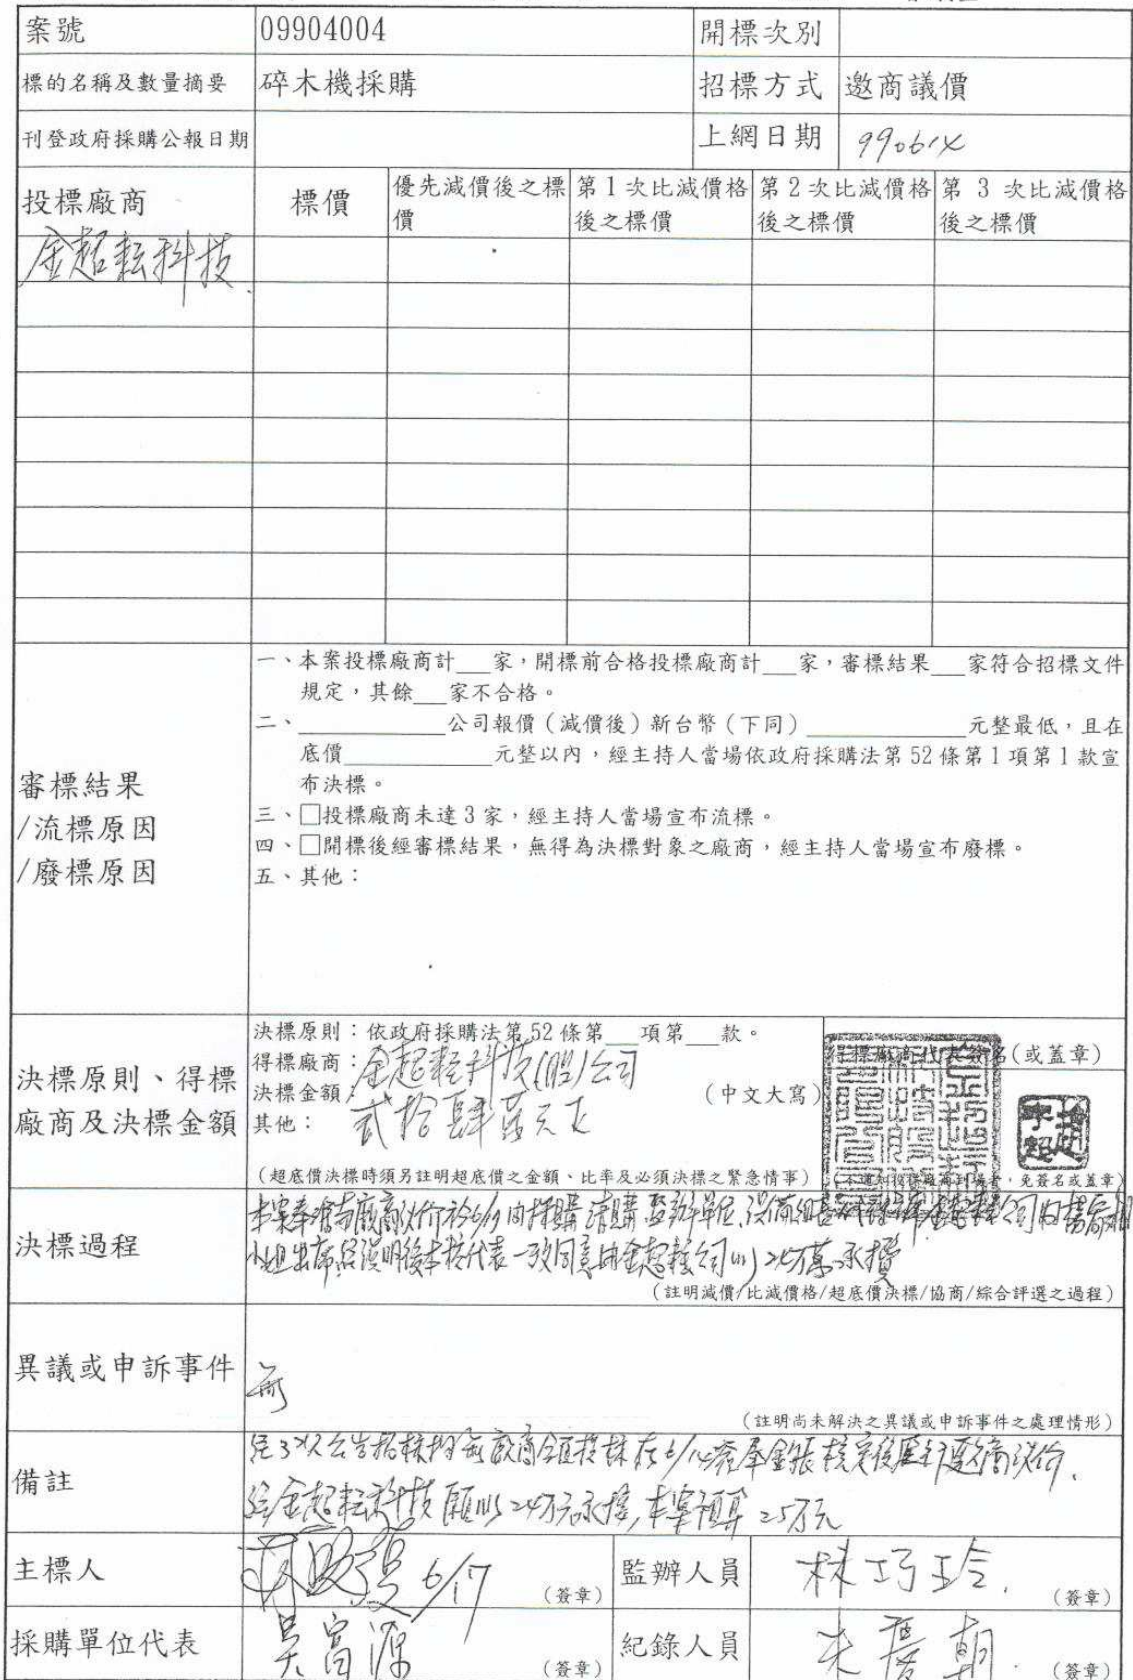 案號 09904004 開標次別
標的名稱及數量摘要 碎木機採購 招標方式 邀商議價
刊登政府採購公報日期 上網日期 990614
投標廠商 標價 優先減價後之標價 第1次比減價格後之標價 第2次比減價格後之標價 第3次比減價格後之標價
金超耘科技
審標結果
/流標原因
/廢標原因
一、本案投標廠商計___家,開標前合格投標廠商計___家,審標結果___家符合招標文件
規定,其餘___家不合格。
二、__________公司報價(減價後)新台幣(下同)__________元整最低,且在
底價__________元整以內,經主持人當場依政府採購法第52條第1項第1款宣
布決標。
三、□投標廠商未達3家,經主持人當場宣布流標。
四、□開標後經審標結果,無得為決標對象之廠商,經主持人當場宣布廢標。
五、其他:
決標原則、得標
廠商及決標金額
決標原則:依政府採購法第52條第___項第___款。
得標廠商:金超耘科技(股)公司
決標金額: 貳拾肆萬元正 (中文大寫)
其他:
(超底價決標時須另註明超底價之金額、比率及必須決標之緊急情事)
得標廠商代表簽名(或蓋章)
(不通知投標廠商到場者,免簽名或蓋章)
決標過程
本案奉准與廠商議價於6/17由採購請購監辦單位
小姐出席 說明後本校代表一致同意由金超耘公司以24萬承攬
(註明減價/比減價格/超底價決標/協商/綜合評選之過程)
異議或申訴事件 無
(註明尚未解決之異議或申訴事件之處理情形)
備註
經3次公告招標均無廠商 投標在6/14 核定後 邀商議價.
經金超耘科技願以24萬元承攬,本案預算25萬元
主標人 6/17 (簽章) 監辦人員 林巧玲 (簽章)
採購單位代表 吳富源 (簽章) 紀錄人員 朱慶朝 (簽章)